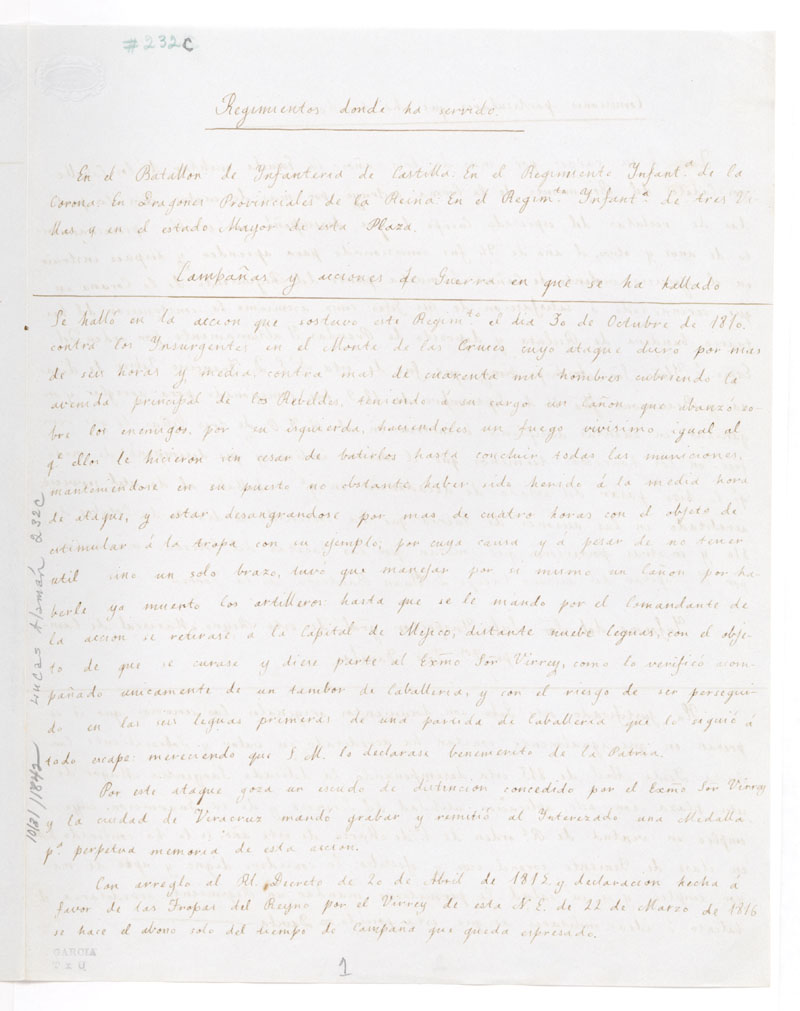 #232C
Regimientos donde ha servido.
En el Batallon de Infanteria de Castilla. En el Regimiento Infant.ª de la
Corona. En Dragones Provinciales de la Reina. En el Regim.to Infant.ª de tres Vi-
llas, y en el estado Mayor de esta Plaza.
Campañas y acciones de Guerra en que se ha hallado
Se halló en la accion que sostuvo este Regim.to el dia 30 de Octubre de 1810.
contra los Insurgentes en el Monte de las Cruces, cuyo ataque duró por mas
de seis horas y media, contra mas de cuarenta mil hombres cubriendo la
avenida principal de los Rebeldes, teniendo á su cargo un Cañon que abanzó so-
bre los enemigos, por su izquierda, haciendoles un fuego vivisimo, igual al
q.e ellos le hicieron sin cesar de batirlos hasta concluir todas las municiones,
manteniendose en su puesto no obstante haber sido herido á la media hora
de ataque, y estar desangrandose por mas de cuatro horas con el objeto de
estimular á la tropa con su ejemplo; por cuya causa y á pesar de no tener
util sino un solo brazo, tuvó que manejar por si mismo un Cañon por ha-
berle ya muerto los artilleros hasta que se le mandó por el Comandante de
la accion se retirase á la Capital de Mejico, distante nueve leguas, con el obje-
to de que se curase y diese parte al Exmo Sor Virrey, como lo verificó acom-
pañado unicamente de un tambor de Caballeria, y con el riesgo de ser persegui-
do en las seis leguas primeras de una partida de Caballeria que lo siguió á
todo escape: mereciendo que S. M. lo declarase benemerito de la Patria.
Por este ataque goza un escudo de distincion concedido por el Exmo Sor Virrey
y la ciudad de Veracruz mandó grabar y remitió al Interezado una Medalla
p.ª perpetua memoria de esta accion.
Con arreglo al Rl. Decreto de 20 de Abril de 1815 y declaracion hecha á
favor de las Tropas del Reyno por el Virrey de esta N. E. de 22 de Marzo de 1816
se hace el abono solo del tiempo de Campaña que queda espresado.
GARCIA
1
10/21/1842 Lucas Alamán 232C